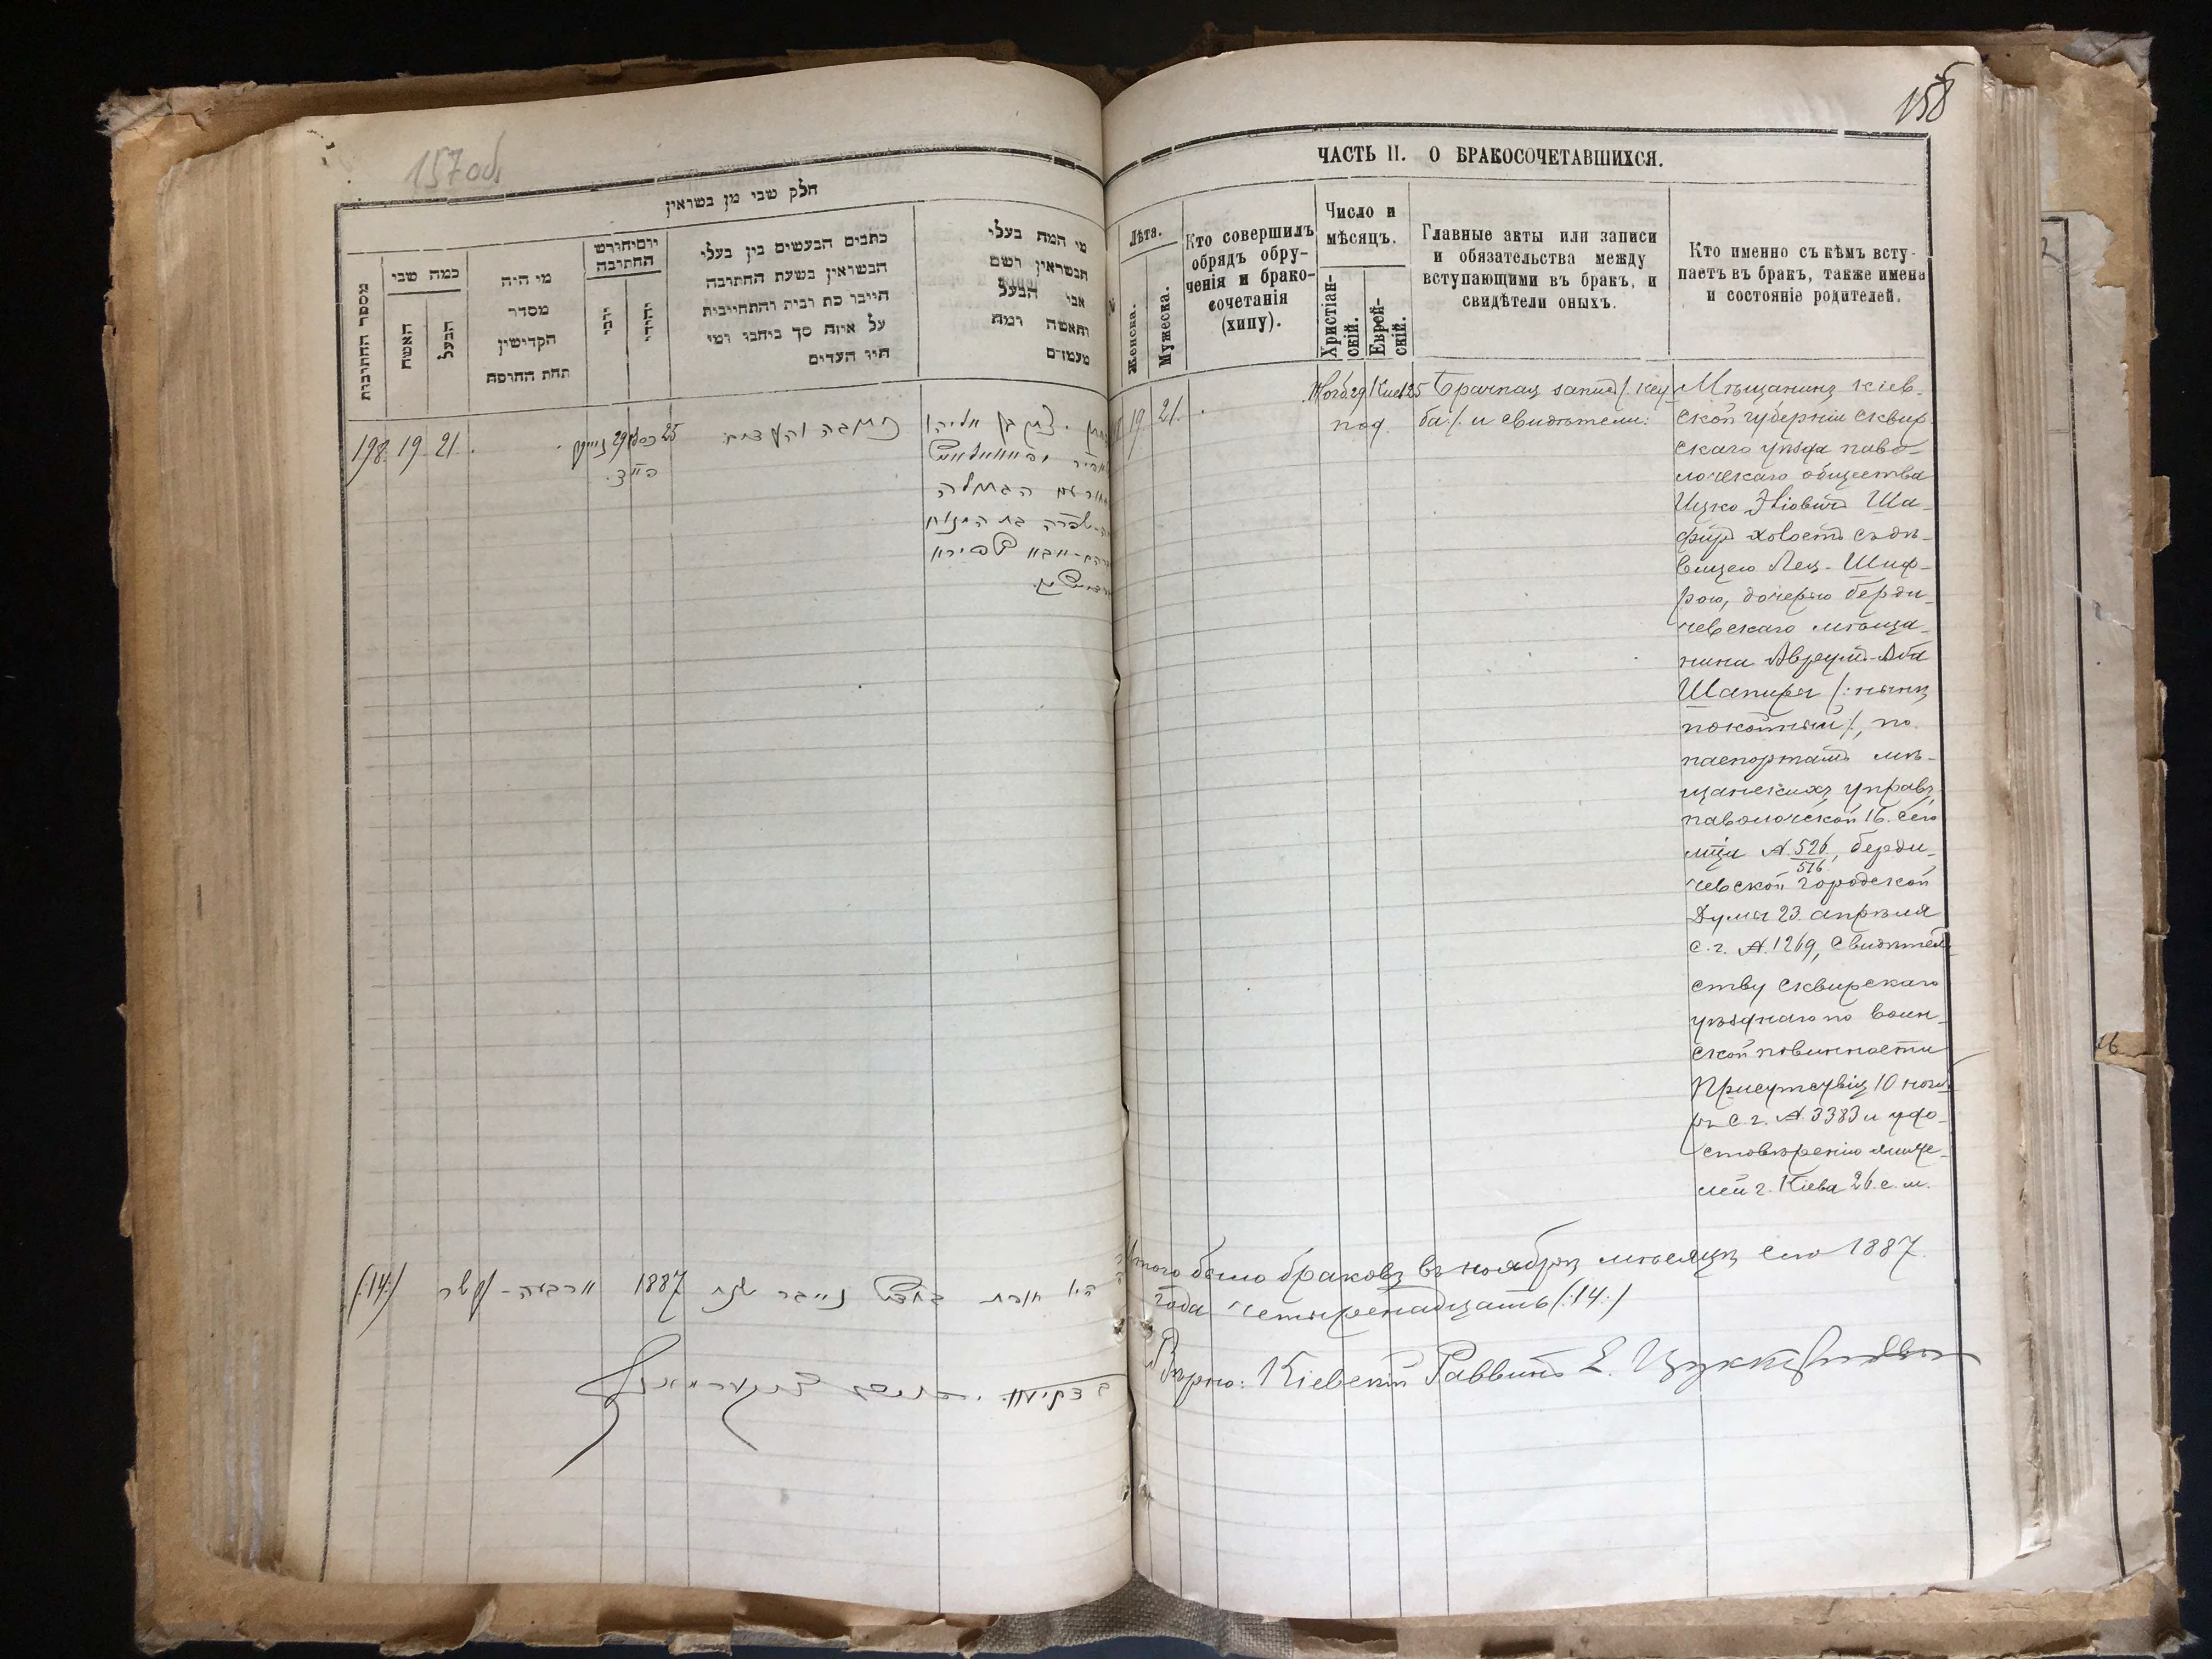 157об
חלק שני מן נשואין
מספר החתונות
כמה שני
האשה
הבעל
מי היה
מסדר
הקדישין
תחת החופה
יום וחודש
החתונה
כתבים הנעשים בין בעלי
הנשואין בשעת החתונה
היינו כת ובית והתחייבות
על איזה סך ביחבו ומי
היו העדים
מי המה בעלי
הנשואין ושם
אבי הבעל
והאשה ומה
מעמדם
198 19 21
29
25
כתובה והעדים
יצחק בן אליהו
(:14:)
היו חופות בחדש נייבר שנת 1887 ארבעה-עשר
158
ЧАСТЬ II. О БРАКОСОЧЕТАВШИХСЯ.
Лѣта.
Женска.
Мужеска.
Кто совершилъ
обрядъ обру-
ченія и брако-
сочетанія
(хипу).
Число и
мѣсяцъ.
Христіан-
скій.
Еврей-
скій.
Главные акты или записи
и обязательства между
вступающими въ бракъ, и
свидѣтели оныхъ.
Кто именно съ кѣмъ всту-
паетъ въ бракъ, также имена
и состояніе родителей.
19 21. Нояб 29 Кис 25
Брачная запись /: кту-
ба:/ и свидѣтели:
Мѣщанинъ Кіев-
ской губерніи Сквир-
скаго уѣзда паво-
лочскаго общества
Ицко Эліовичъ Ша-
фиръ холостъ съ дѣ-
вицею Леа-Шиф-
рою, дочерью берди-
чевскаго мѣща-
нина Аврумъ-Аба
Шапира /: нынѣ
покойный:/, по
паспортамъ мѣ-
щанскихъ управъ
паволочской 16. сего
мѣца №. 526/516, берди-
чевской городской
Думы 23. апрѣля
с. г. №. 1269, свидѣтель
ству сквирскаго
уѣзднаго по воин-
ской повинности
Присутствія 10 нояб-
ря с. г. №. 3383 и удо-
стовѣренію
г. Кіева 26. с. м.
Итого было браковъ въ ноябрѣ мѣсяцѣ сего 1887.
года четыренадцать (:14:)
Вѣрно: Кіевскій Раввинъ Е. Цуккерманъ